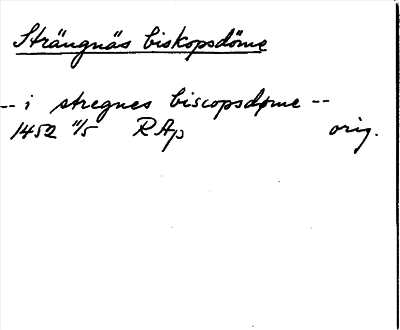 Strängnäs biskopsdöme
-- i stregnes biscopsdøme --
1452 11/5 RAp orig.